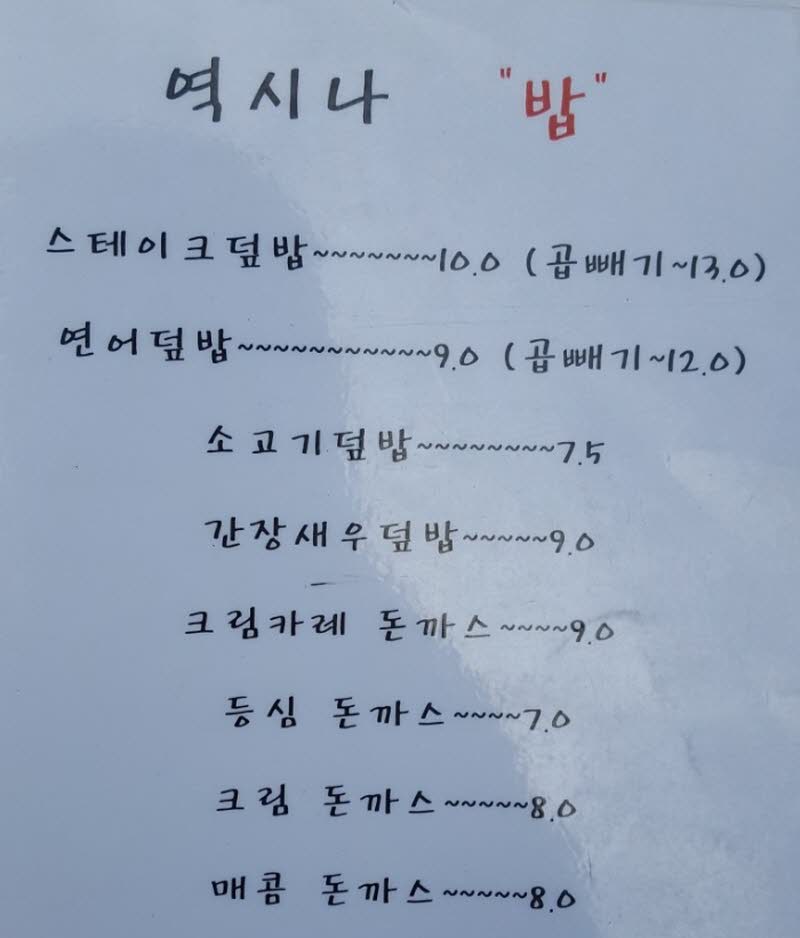 역시나 "밥"
스테이크덮밥~~~~~~~10.0 (곱빼기~13.0)
연어덮밥~~~~~~~~~~~9.0 (곱빼기~12.0)
소고기덮밥~~~~~~~~7.5
간장새우덮밥~~~~~9.0
크림카레 돈까스~~~~9.0
등심 돈까스~~~~7.0
크림 돈까스~~~~~8.0
매콤 돈까스~~~~~8.0